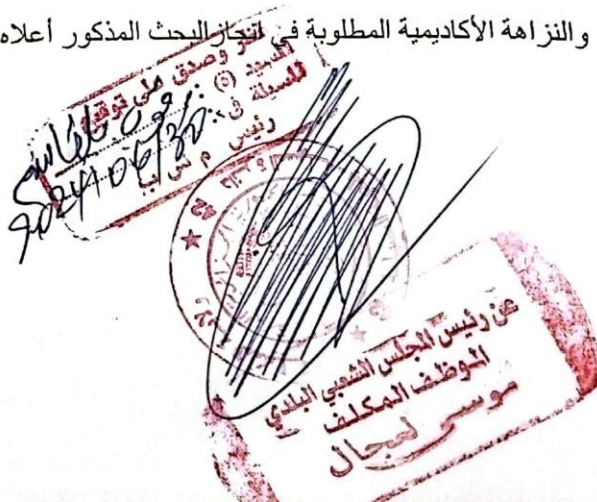 والنزاهة الأكاديمية المطلوبة في انجاز البحث المذكور أعلاه
وصدق على توقيع
السيد (ة)
المسيلة في
رئيس م ش ب
2024/06/30
عن رئيس المجلس الشعبي البلدي
الموظف المكلف
موسى لعجال